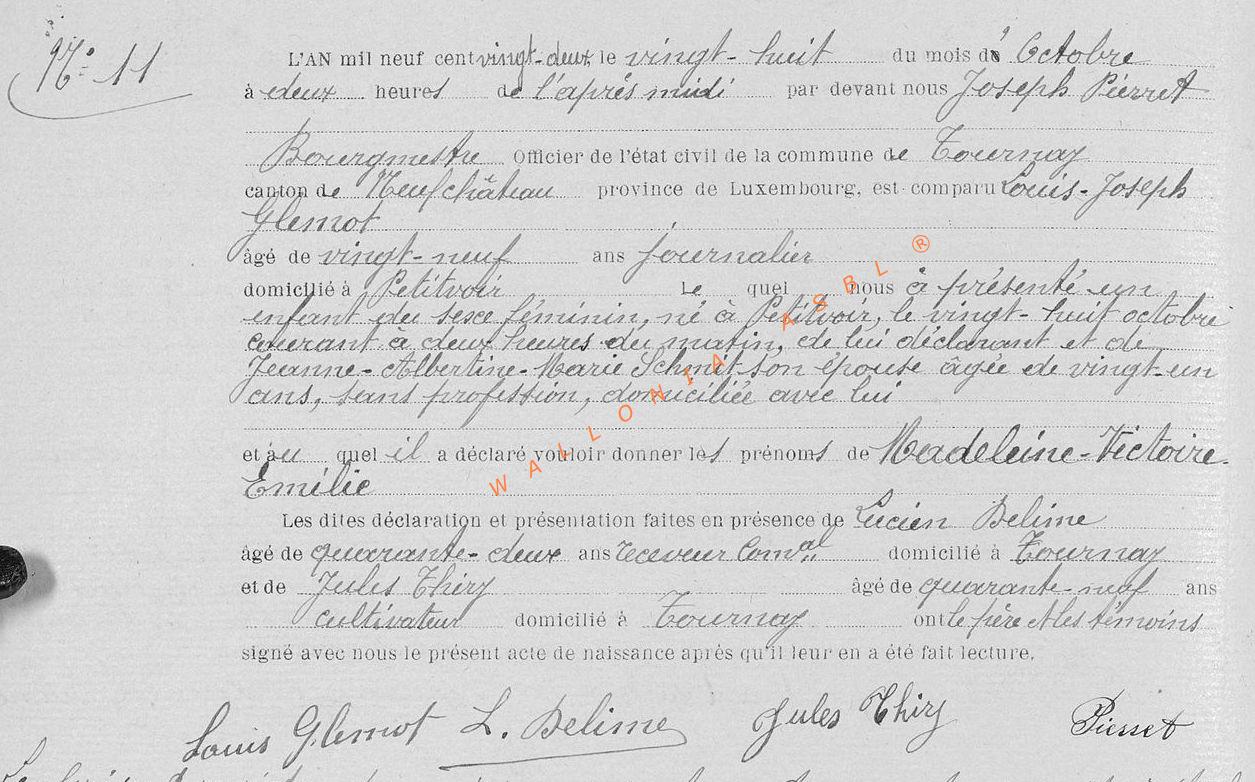 N° 11
L'AN mil neuf cent vingt-deux, le vingt-huit du mois d' Octobre
à deux heures de l'après midi par devant nous Joseph Pierret
Bourgmestre Officier de l'état civil de la commune de Tournay
canton de Neufchâteau province de Luxembourg, est comparu Louis-Joseph
Glemot
âgé de vingt-neuf ans journalier
domicilié à Petitvoir Le quel nous à présenté un
enfant du sexe féminin, né à Petitvoir, le vingt-huit octobre
courant à deux heures du matin, de lui déclarant et de
Jeanne-Albertine-Marie Schmit son épouse âgée de vingt-un
ans, sans profession, domiciliée avec lui
et au quel il a déclaré vouloir donner les prénoms de Madeleine-Victoire-
Emilie
Les dites déclaration et présentation faites en présence de Lucien Belime
âgé de quarante-deux ans receveur Com.al domicilié à Tournay
et de Jules Thiry âgé de quarante-neuf ans
cultivateur domicilié à Tournay ont le père et les témoins
signé avec nous le présent acte de naissance après qu'il leur en a été fait lecture.
Louis Glemot L. Belime Jules Thiry Pierret
WALLONIA ASBL ®